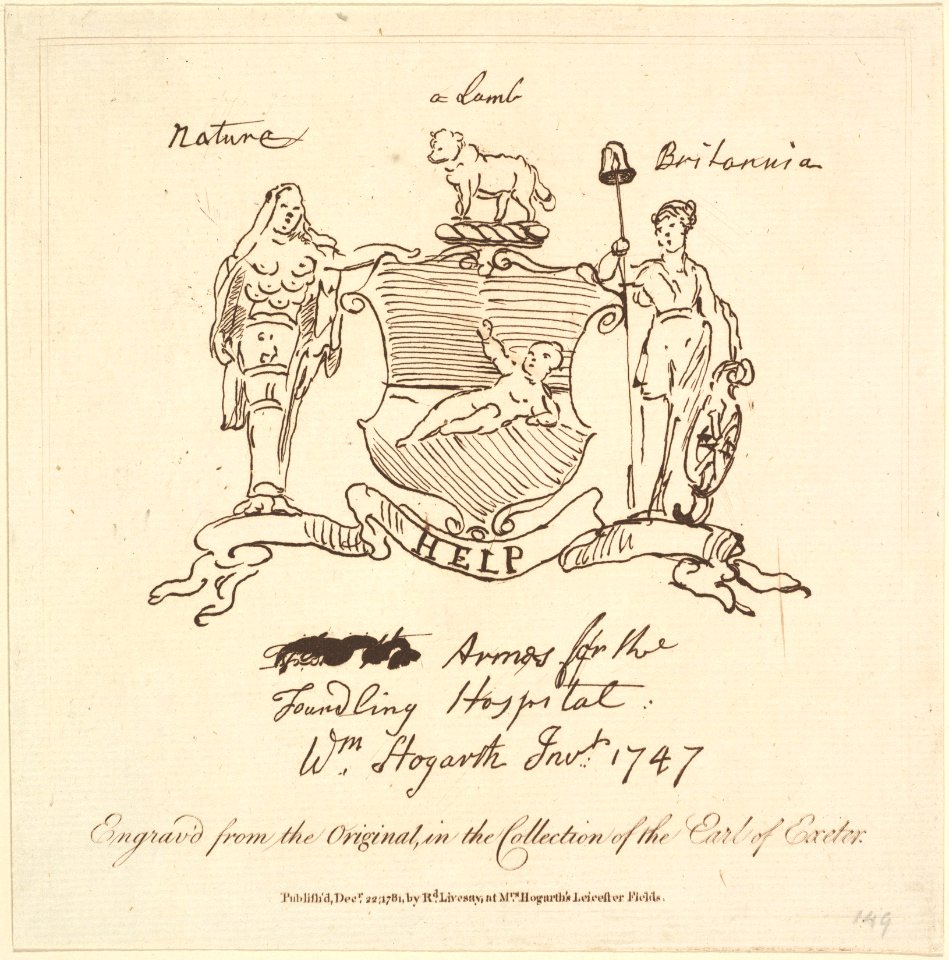 a Lamb
Natura
Britannia
HELP
Armes for the
Foundling Hospital.
Wm. Hogarth Invt. 1747
Engrav'd from the Original, in the Collection of the Earl of Exeter.
Publish'd, Decr. 22, 1781, by Rd. Livesay, at Mrs. Hogarth's Leicester Fields.
149